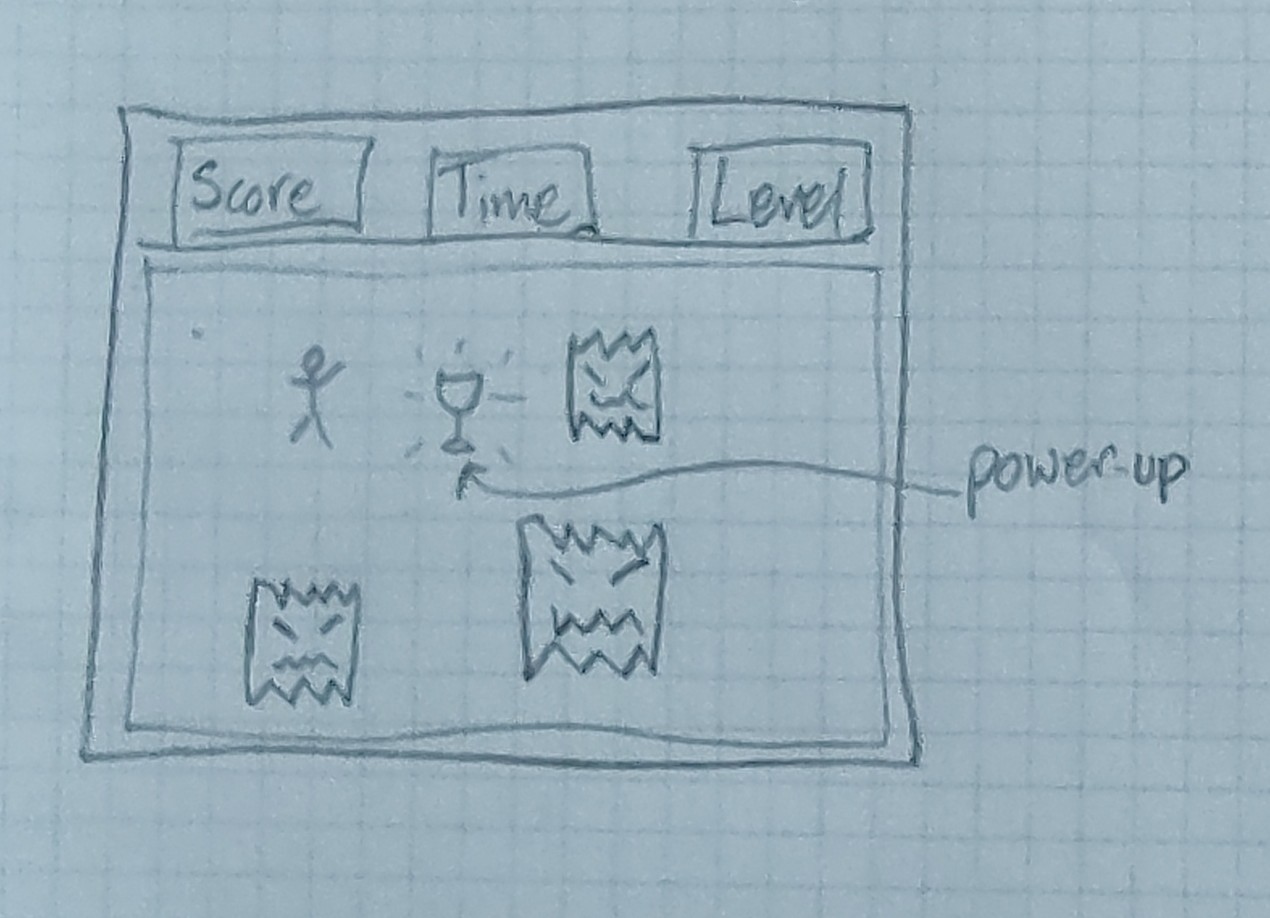 Score
Time
Level
power-up